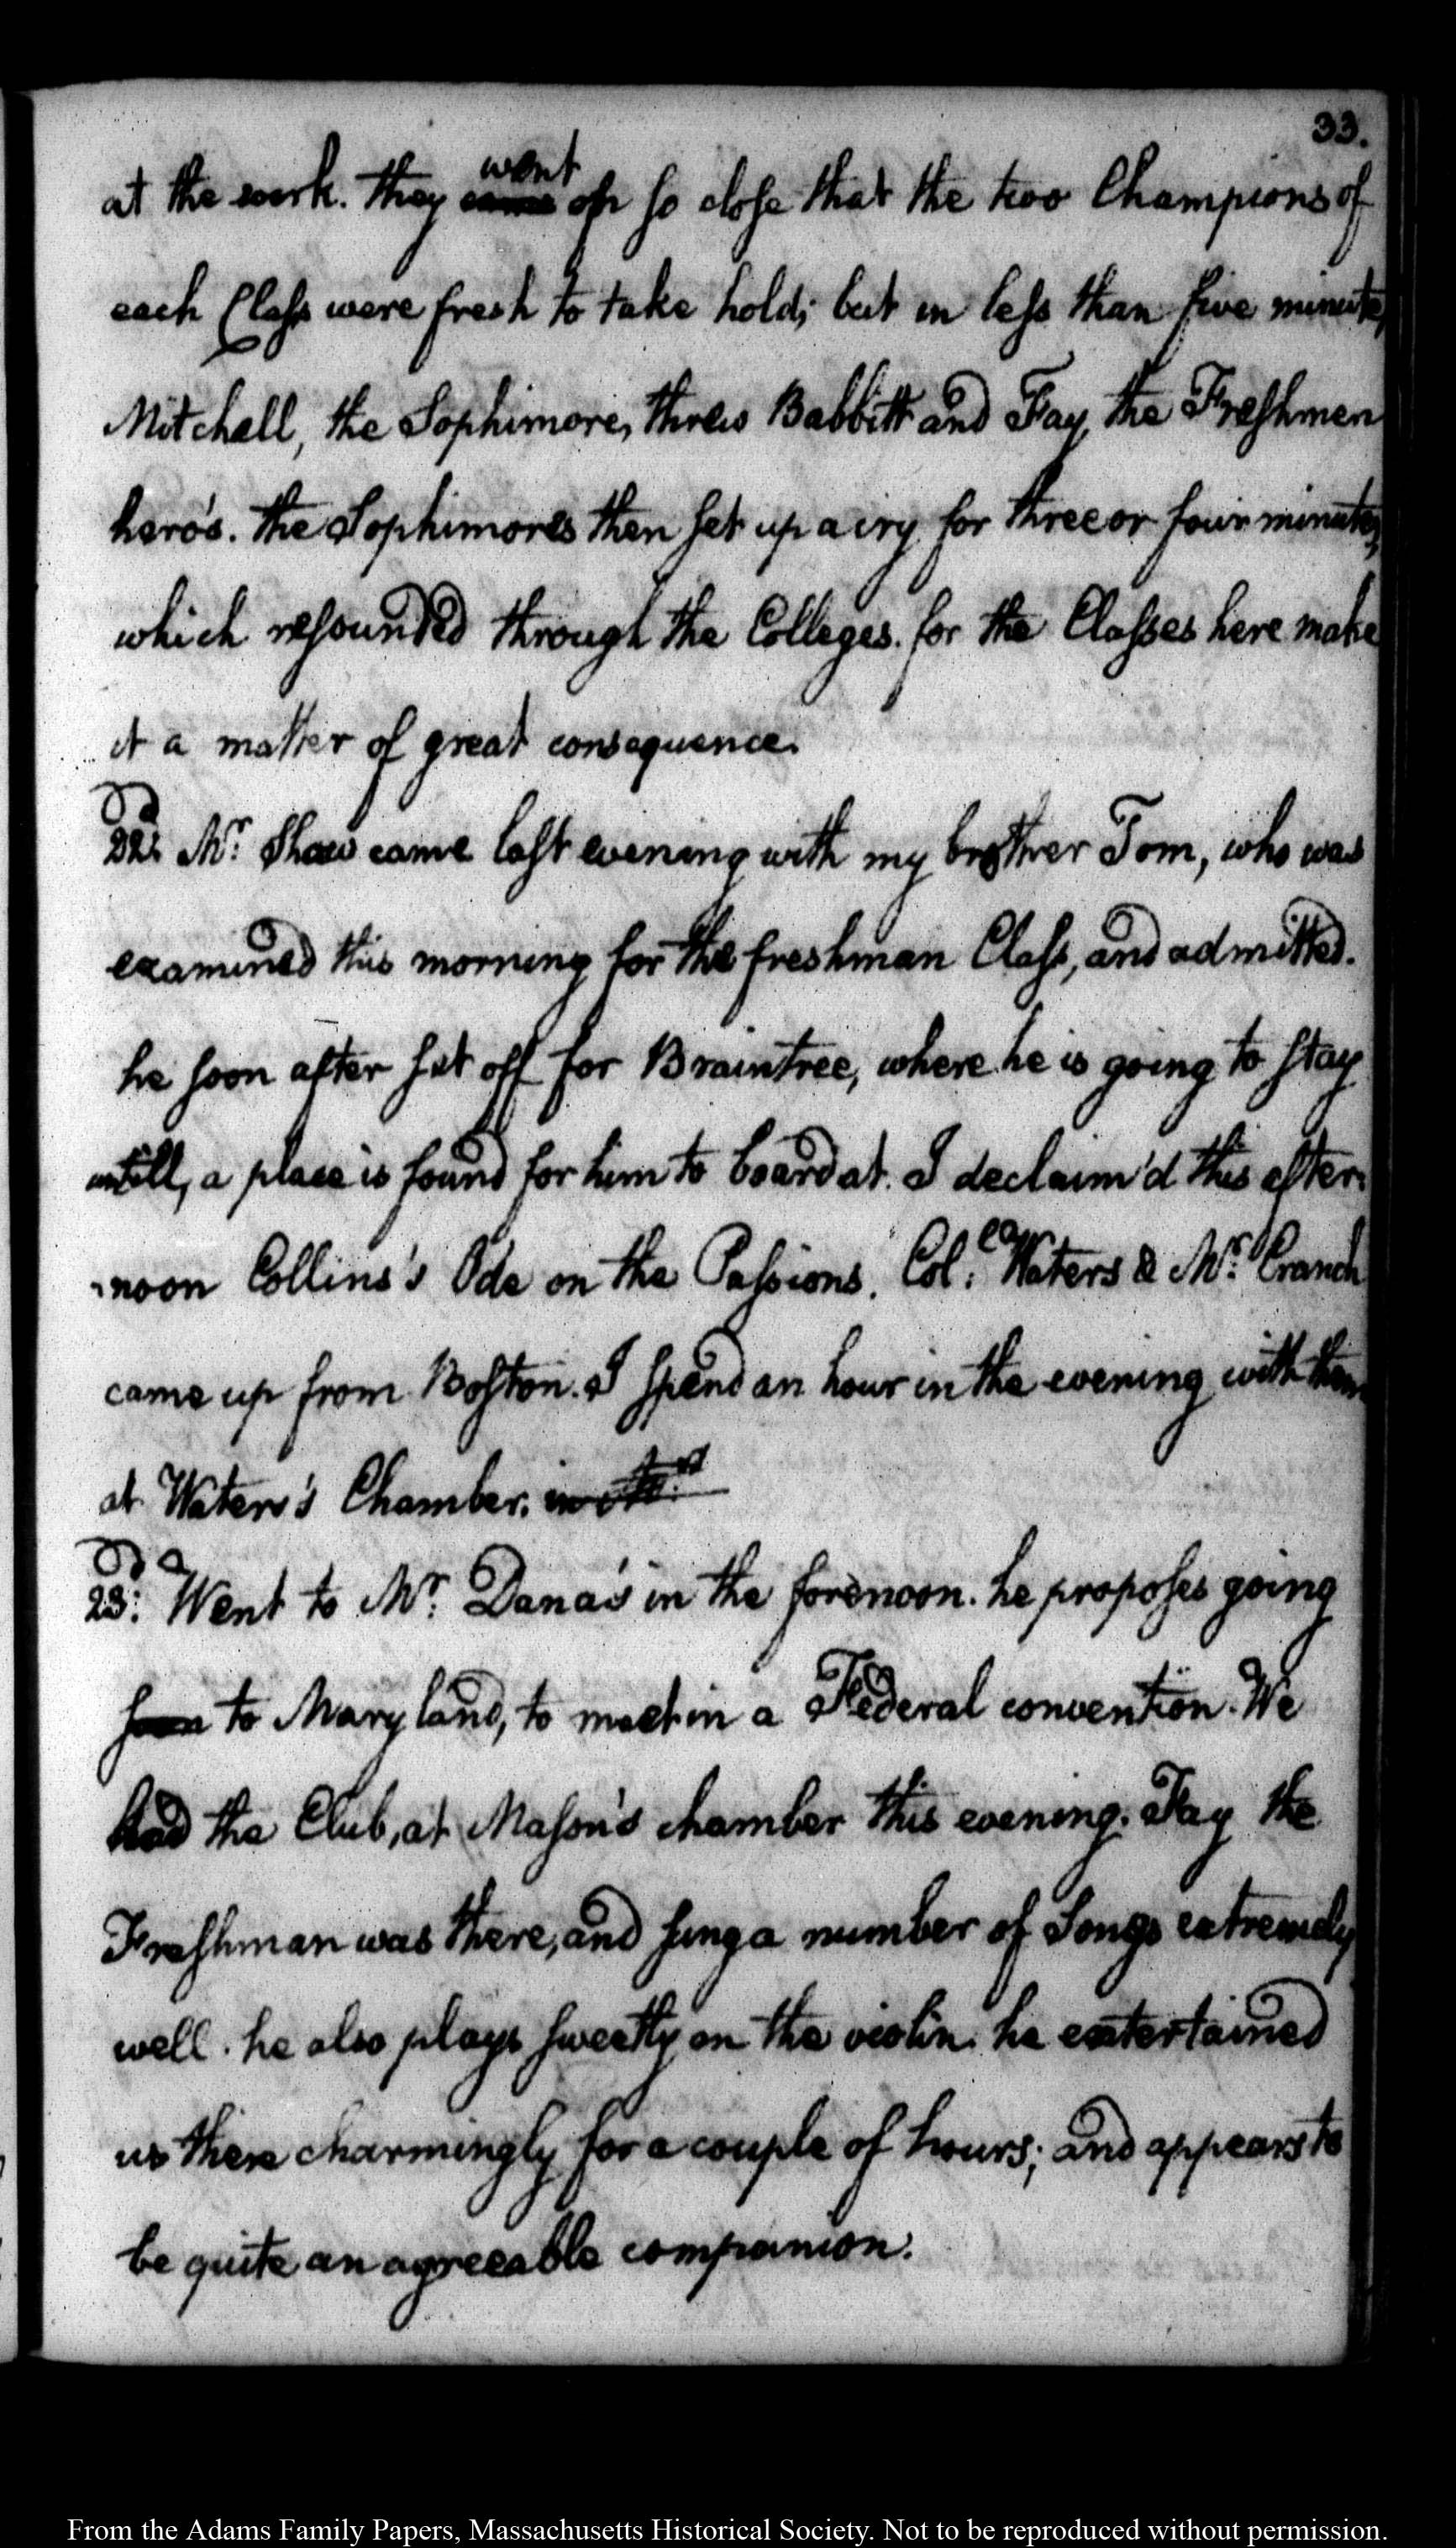 33.
at the work. They came went on so close that the two Champions of
each Class were fresh to take hold; but in less than five minutes,
Mitchell, the Sophimore, threw Babbitt and Fay, the Freshmen
hero's. The Sophimores then set up a cry for three or four minutes,
which resounded through the Colleges. for the Classes here make
it a matter of great consequence.
22d. Mr. Shaw came last evening with my brother Tom, who was
examined this morning for the freshman Class, and admitted.
he soon after set off for Braintree, where he is going to stay
untill, a place is found for him to board at. I declaim'd this after-
-noon Collins's Ode on the Passions. Coll. Waters & Mr. Cranch
came up from Boston. I spend an hour in the evening with them
at Waters's Chamber.
23d. Went to Mr. Dana's in the forenoon. he proposes going
soon to Maryland, to meet in a Federal convention. We
had the Club, at Mason's chamber this evening. Fay the
Freshman was there, and sung a number of Songs extremely
well. he also plays sweetly on the violin. he entertained
us there charmingly for a couple of hours; and appears to
be quite an agreeable companion.
From the Adams Family Papers, Massachusetts Historical Society. Not to be reproduced without permission.